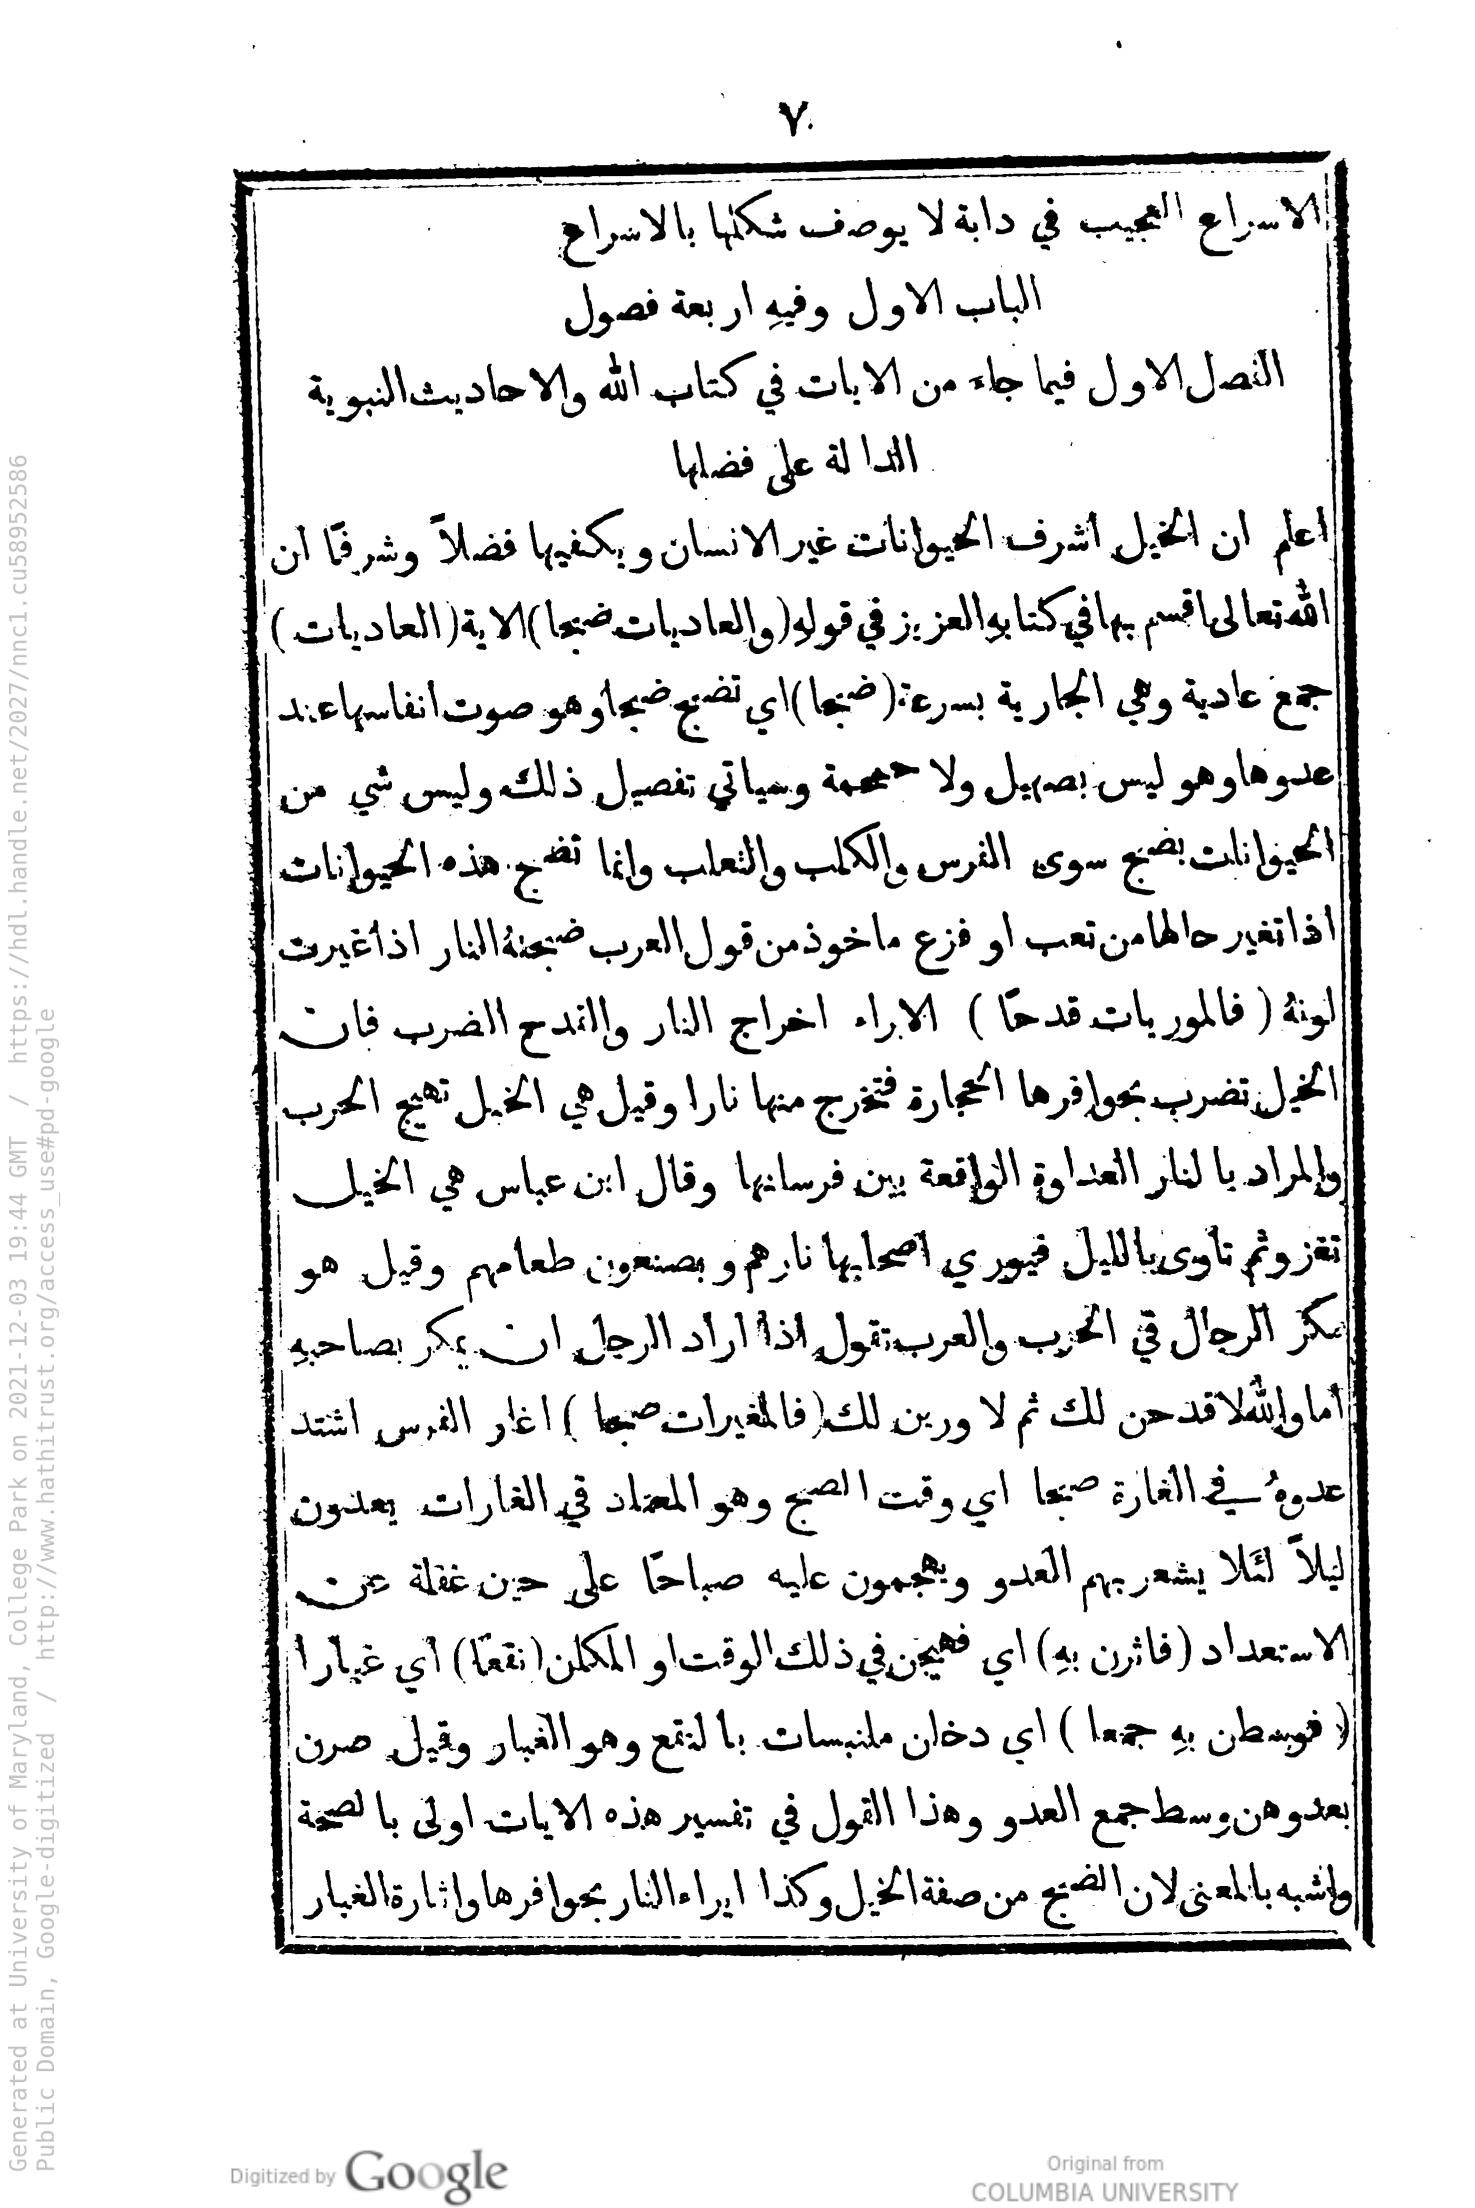 ٧
الاسراع العجيب في دابة لا يوصف شكلها بالاسراع
الباب الاول وفيهِ اربعة فصول
الفصل الاول فيما جاء من الايات في كتاب الله والاحاديث النبوية
الدالة على فضلها
اعلم ان الخيل اشرف الحيوانات غير الانسان ويكفيها فضلاً وشرفًا ان
الله تعالى اقسم بها في كتابهِ العزيز في قولهِ (والعاديات ضبحا) الاية (العاديات)
جمع عادية وهي الجارية بسرعة (ضبحا) اي تضبح ضبحا وهو صوت انفاسها عند
عدوها وهو ليس بصهيل ولا حمحمة وسياتي تفصيل ذلك وليس شي من
الحيوانات يضبح سوى الفرس والكلب والثعلب وانما تضبح هذه الحيوانات
اذا تغير حالها من تعب او فزع ماخوذ من قول العرب ضبحتهُ النار اذا غيرت
لونهُ ( فالموريات قدحًا ) الايراء اخراج النار والقدح الضرب فان
الخيل تضرب بحوافرها الحجارة فتخرج منها نارا وقيل هي الخيل تهيج الحرب
والمراد بالنار العداوة الواقعة بين فرسانها وقال ابن عباس هي الخيل
تغزو ثم تاوى بالليل فيوري اصحابها نارهم ويصنعون طعامهم وقيل هو
مكر الرجال في الحرب والعرب تقول اذا اراد الرجل ان يمكر بصاحبهِ
اما والله لاقدحن لك ثم لا ورين لك (فالمغيرات صبحا ) اغار الفرس اشتد
عدوهُ في الغارة صبحا اي وقت الصبح وهو المعتاد في الغارات يعدون
ليلاً لئلا يشعر بهم العدو ويهجمون عليه صباحًا على حين غفلة عن
الاستعداد (فاثرن بهِ) اي فهيجن في ذلك الوقت او المكان (نقعًا) اي غبارا
( فوسطن بهِ جمعا ) اي دخان ملتبسات بالنقع وهو الغبار وقيل صرن
بعدوهن وسط جمع العدو وهذا القول في تفسير هذه الايات اولى بالصحة
واشبه بالمعنى لان الضبح من صفة الخيل وكذا ايراء النار بحوافرها واثارة الغبار
Generated at University of Maryland, College Park on 2021-12-03 19:44 GMT / https://hdl.handle.net/2027/nnc1.cu58952586
Public Domain, Google-digitized / http://www.hathitrust.org/access_use#pd-google
Digitized by Google
Original from
COLUMBIA UNIVERSITY